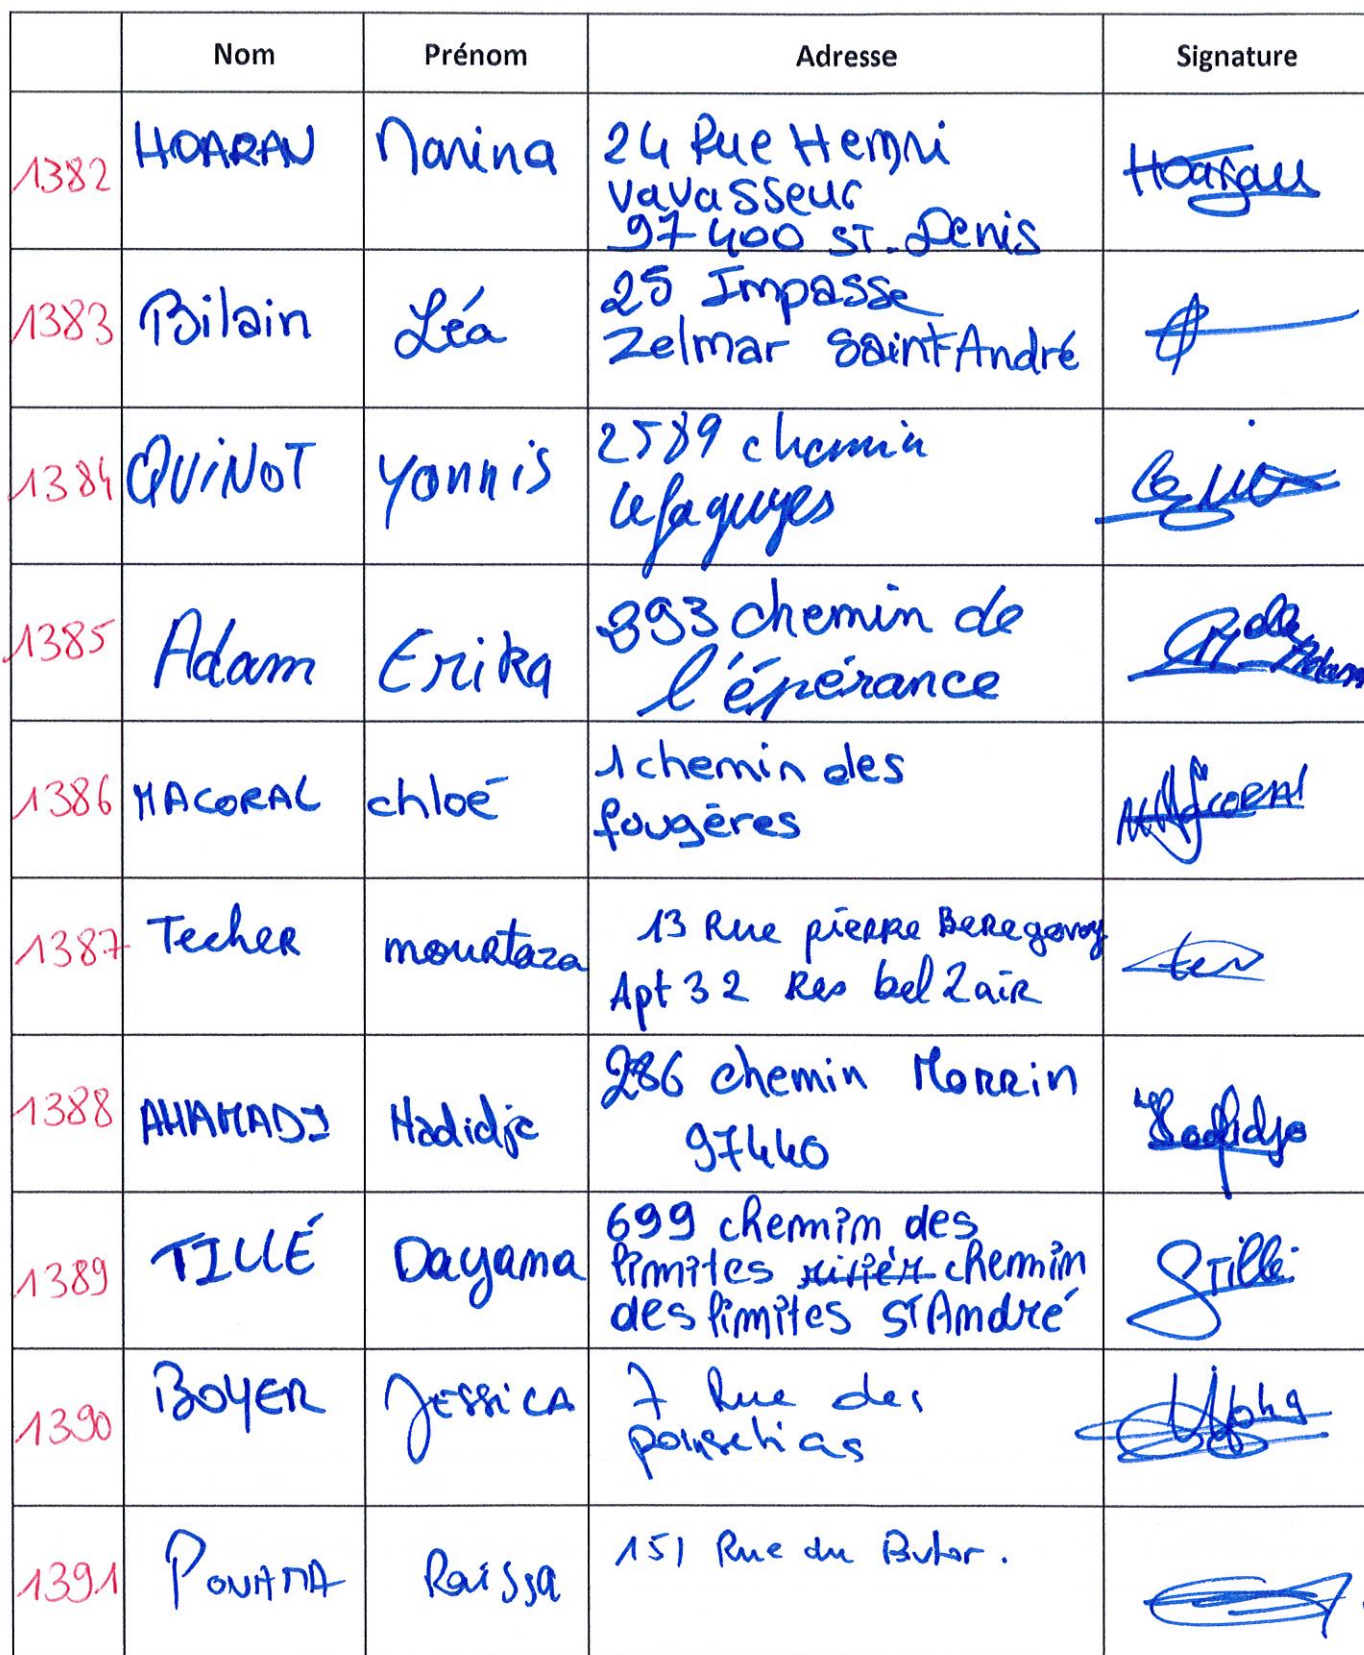 Nom Prénom Adresse Signature
1382 HOARAU Manina 24 Rue Henri
vavasseur
97400 ST-Denis
Hoarau
1383 Bilain Léa 25 Impasse
Zelmar Saint-André
1384 QUiNOT Yannis 2589 chemin
1385 Adam Erika 393 chemin de
l'épérance
Adam
1386 MACORAL chloé 1 chemin des
fougères
MACORAL
1387 Techer mourtaza 13 Rue pierre Beregovoy
Apt 32 Res bel 2 air
1388 AHAMADI Hadidje 286 chemin Morrin
97440
1389 TILLÉ Dayana 699 chemin des
limites chemin
des limites St André
Tillé
1390 BOYER JESSiCA 7 Rue des
1391 POUNAMA Raissa 151 Rue du Butor.